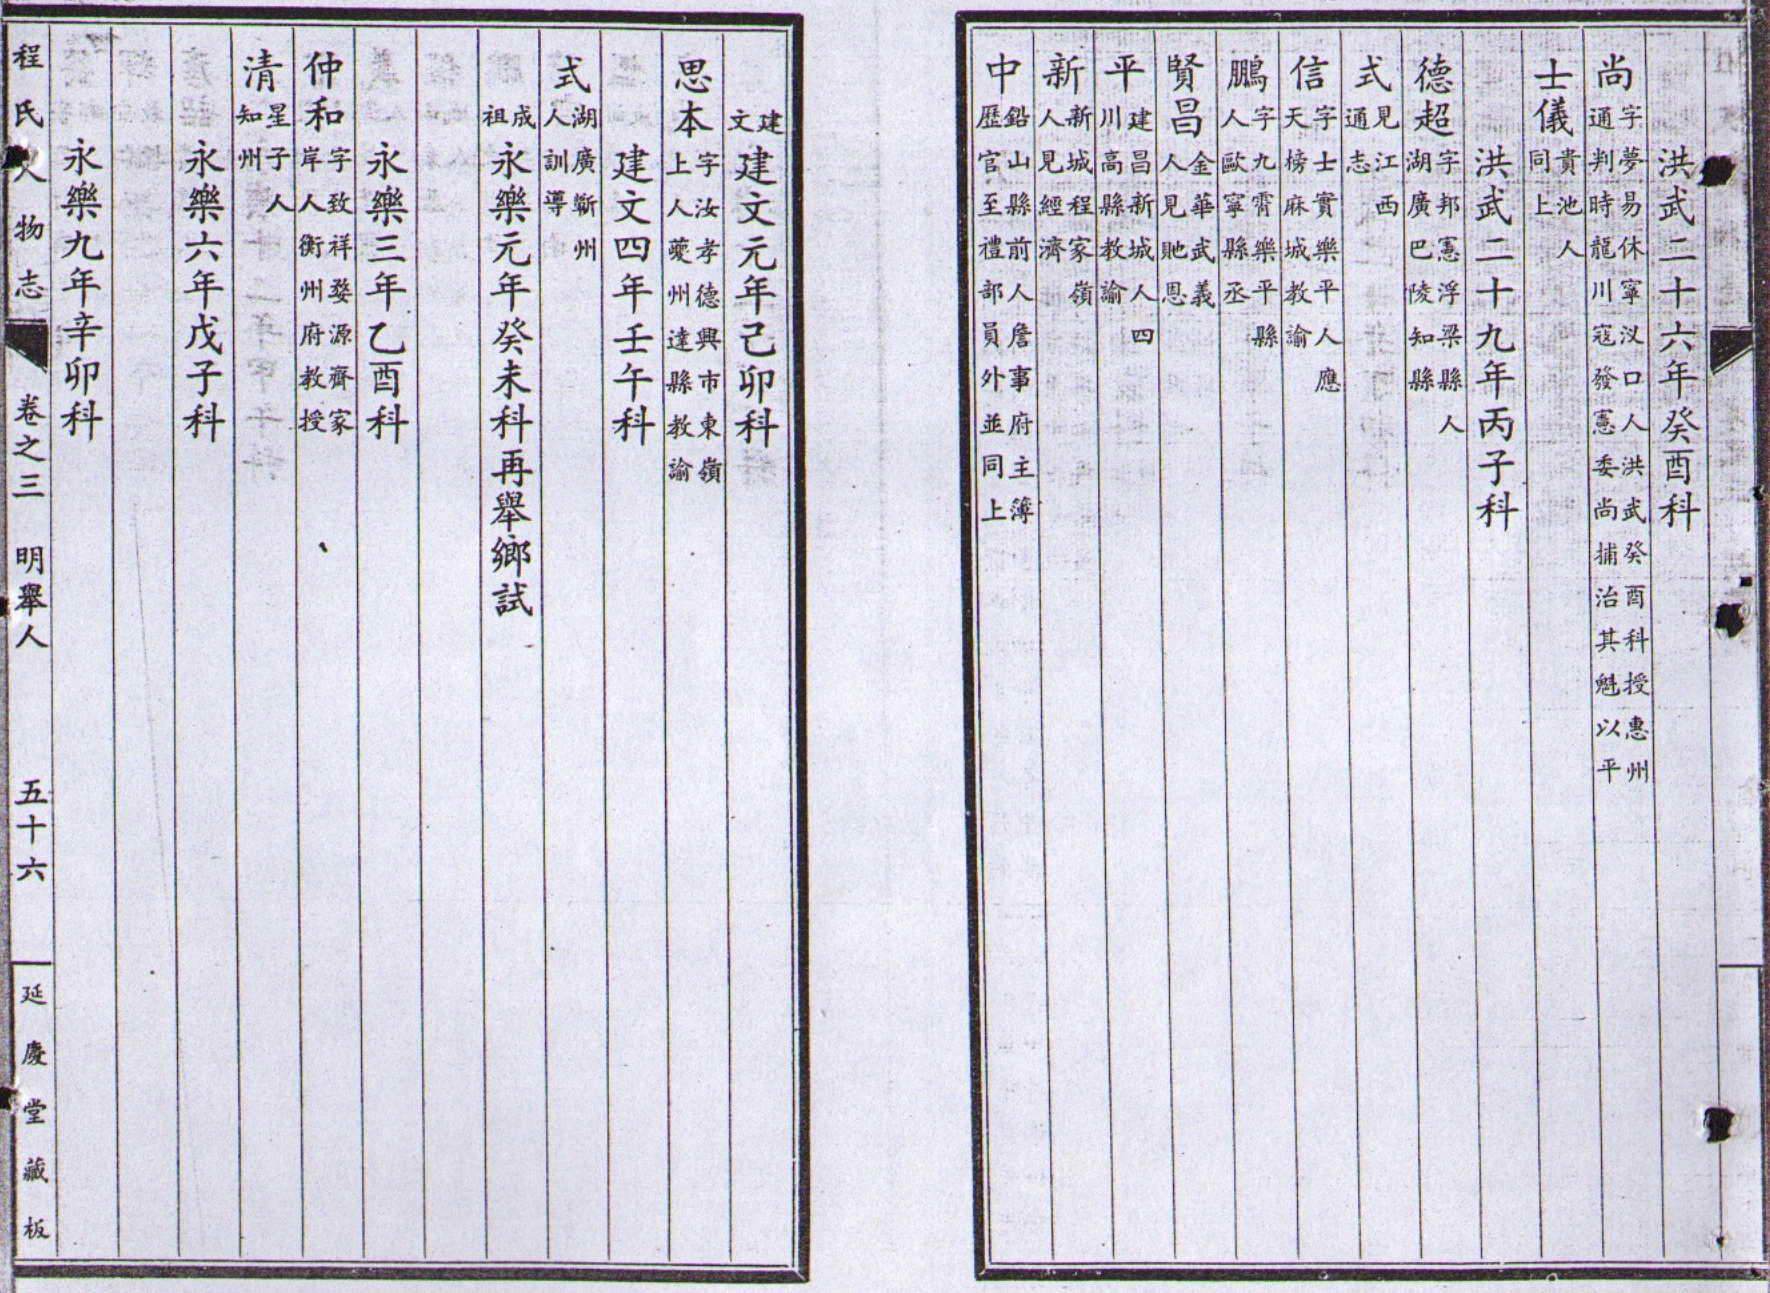 洪武二十六年癸酉科
尚 字夢易休寧汊口人洪武癸酉科授惠州
通判時龍川寇發憲委尚捕治其魁以平
士儀 貴池人
同上
洪武二十九年丙子科
德超 字邦憲浮梁縣人
湖廣巴陵知縣
式 見江西
通志
信 字士實樂平人應
天榜麻城教諭
鵬 字九霄樂平縣
人歐寧縣丞
賢昌 金華武義
人見貤恩
平 建昌新城人四
川高縣教諭
新 新城程家嶺
人見經濟
中 鉛山縣前人詹事府主簿
歷官至禮部員外並同上
建文 建文元年己卯科
思本 字汝孝德興市東嶺
上人夔州達縣教諭
建文四年壬午科
式 湖廣蘄州
人訓導
成祖 永樂元年癸未科再舉鄉試
永樂三年乙酉科
仲和 字致祥婺源齊家
岸人衡州府教授
清 星子人
知州
永樂六年戊子科
永樂九年辛卯科
程氏人物志 卷之三 明舉人 五十六 延慶堂藏板